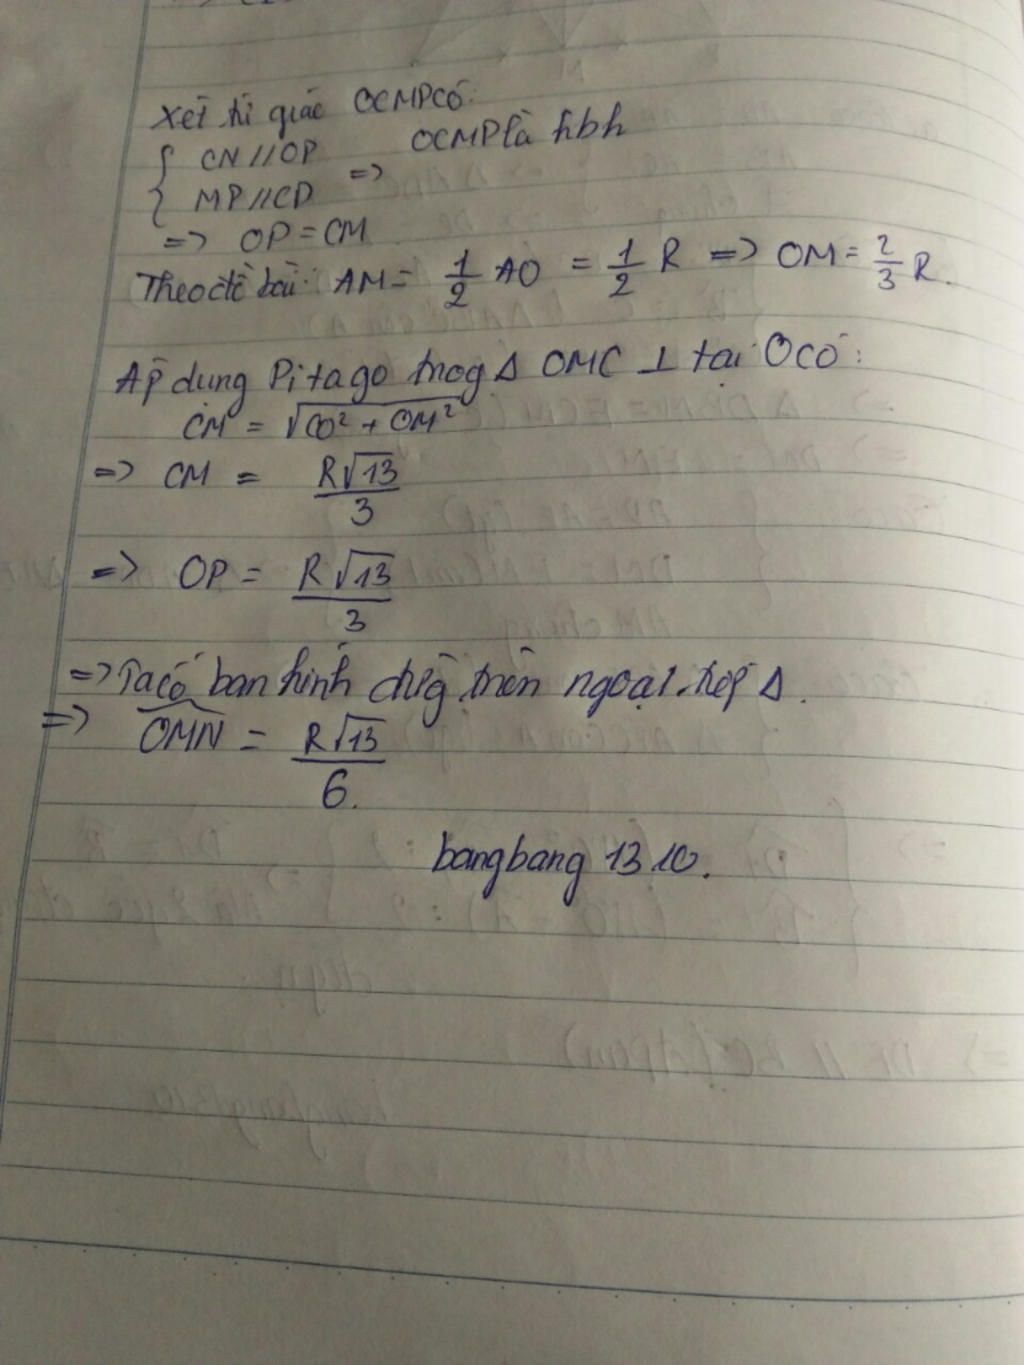 Xét tứ giác OCMP có:
{ CN // OP
MP // CD => OCMP là hbh
=> OP = CM
Theo đề bài: AM = 1/2 AO = 1/2 R => OM = 2/3 R.
Áp dụng Pitago trog Δ OMC ⊥ tại O có:
CM = √(CO² + OM²)
=> CM = R√13/3
=> OP = R√13/3
=> Ta có ban kính đường tròn ngoại tiếp Δ.
=> OMN = R√13/6.
bangbang 1310.